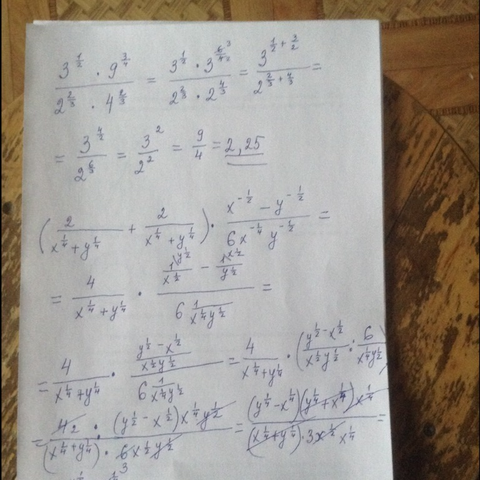 3^{1/2} · 9^{3/4} / 2^{2/3} · 4^{2/3} = 3^{1/2} · 3^{6/4 3/2} / 2^{2/3} · 2^{4/3} = 3^{1/2 + 3/2} / 2^{2/3 + 4/3} =
= 3^{4/2} / 2^{6/3} = 3^2 / 2^2 = 9/4 = 2,25
(2 / x^{1/4} + y^{1/4} + 2 / x^{1/4} + y^{1/4}) · x^{-1/2} - y^{-1/2} / 6x^{-1/4} y^{-1/2} =
= 4 / x^{1/4} + y^{1/4} · (1^{\y^{1/2}} / x^{1/2} - 1^{\x^{1/2}} / y^{1/2}) / 6 1/x^{1/4}y^{1/2} =
= 4 / x^{1/4} + y^{1/4} · (y^{1/2} - x^{1/2} / x^{1/2}y^{1/2}) / 6 1/x^{1/4}y^{1/2} = 4 / x^{1/4} + y^{1/4} · (y^{1/2} - x^{1/2} / x^{1/2}y^{1/2} : 6 / x^{1/4}y^{1/2}
= 4 2 · (y^{1/2} - x^{1/2}) x^{1/4} y^{1/2} / (x^{1/4} + y^{1/4}) · 6 x^{1/2} y^{1/2} = (y^{1/4} - x^{1/4})(y^{1/4} + x^{1/4}) x^{1/4} / (x^{1/4} + y^{1/4}) · 3x^{1/2} x^{1/4} =